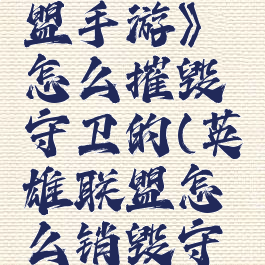 盟手游》
怎么摧毁
守卫的(英
雄联盟怎
么销毁守